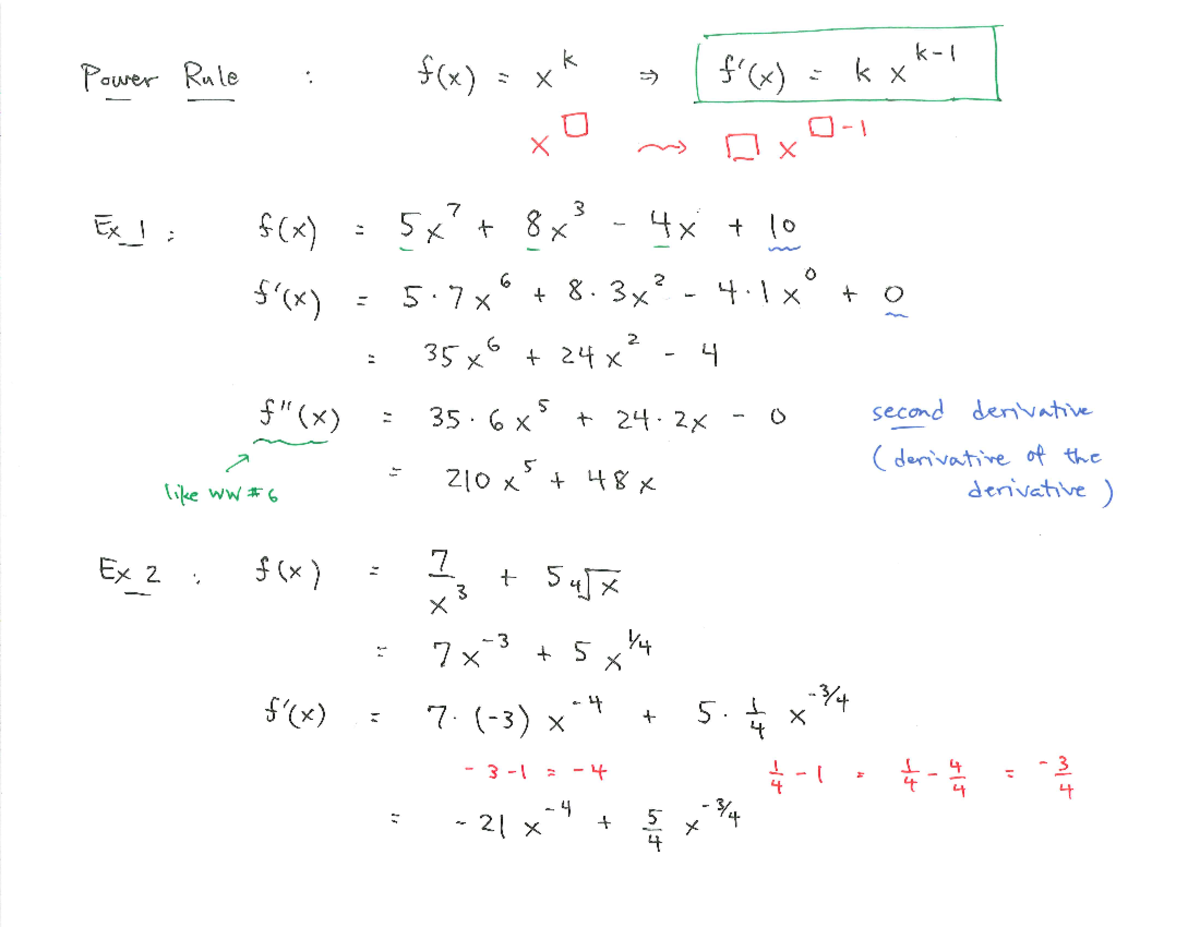 Power Rule : f(x) = x^k ⇒ f'(x) = k x^(k-1)
x^□ ⇝ □ x^(□-1)
Ex 1 : f(x) = 5x^7 + 8x^3 - 4x + 10
f'(x) = 5·7x^6 + 8·3x^2 - 4·1x^0 + 0
= 35x^6 + 24x^2 - 4
f"(x) = 35·6x^5 + 24·2x - 0 second derivative
(derivative of the
= 210x^5 + 48x derivative)
like WW #6
Ex 2 : f(x) = 7/x^3 + 5 ∜x
= 7x^-3 + 5x^1/4
f'(x) = 7·(-3)x^-4 + 5·1/4 x^-3/4
-3-1 = -4 1/4 - 1 = 1/4 - 4/4 = -3/4
= -21x^-4 + 5/4 x^-3/4